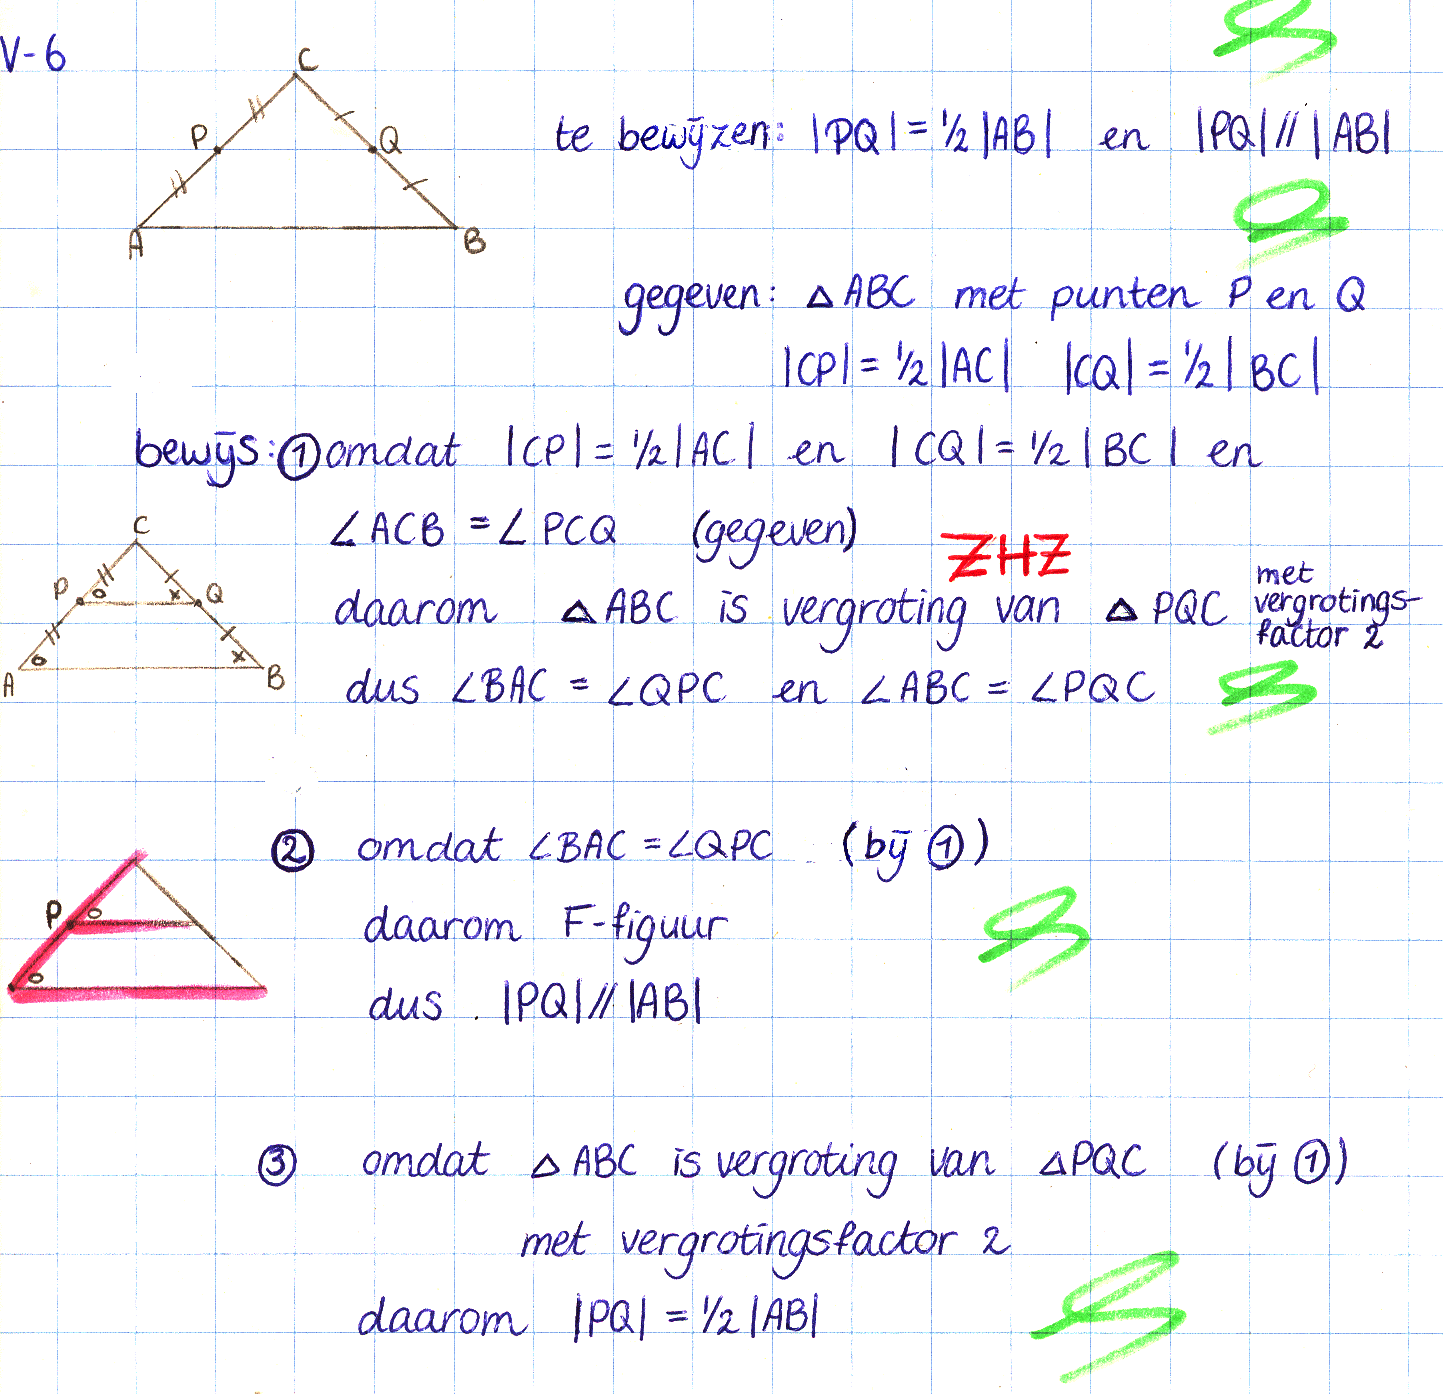 V-6
C
P
Q
A
B
te bewijzen: |PQ| = ½ |AB| en |PQ| // |AB|
gegeven: △ABC met punten P en Q
|CP| = ½ |AC| |CQ| = ½ | BC |
bewijs: ① omdat |CP| = ½ |AC| en |CQ| = ½ | BC | en
∠ACB = ∠PCQ (gegeven)
ZHZ
daarom △ABC is vergroting van △ PQC met vergrotings-
factor 2
dus ∠BAC = ∠QPC en ∠ABC = ∠PQC
C
P
Q
A
B
② omdat ∠BAC = ∠QPC (bij ①)
P
daarom F-figuur
dus |PQ| // |AB|
③ omdat △ABC is vergroting van △PQC (bij ①)
met vergrotingsfactor 2
daarom |PQ| = ½ |AB|